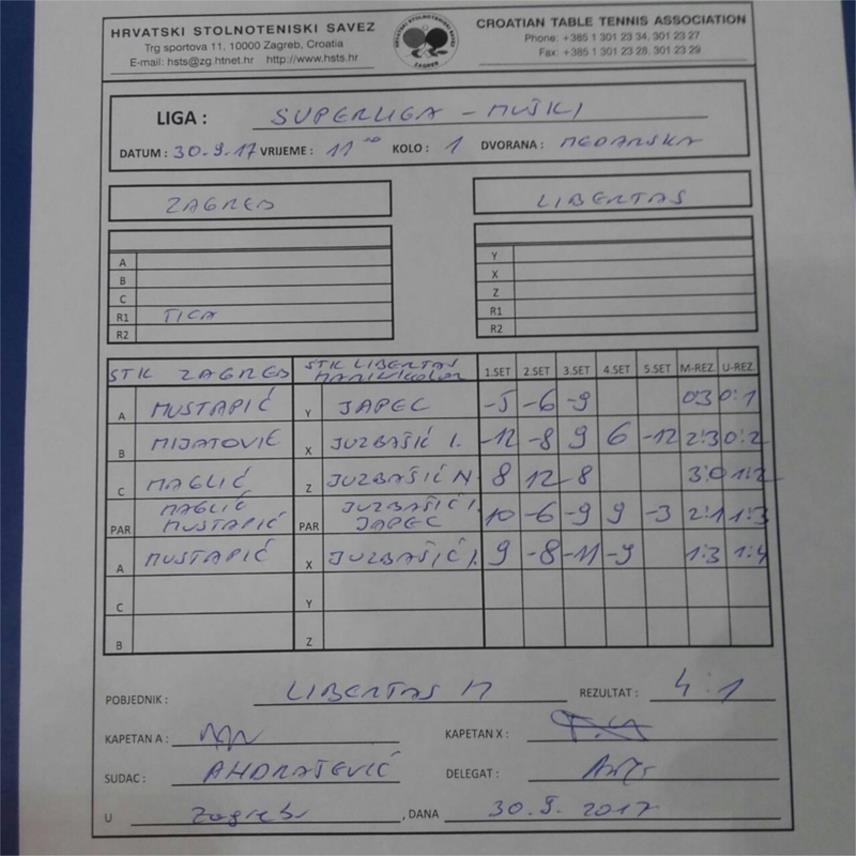 HRVATSKI STOLNOTENISKI SAVEZ
Trg sportova 11, 10000 Zagreb, Croatia
E-mail: hsts@zg.htnet.hr http://www.hsts.hr
HRVATSKI STOLNOTENISKI SAVEZ
ZAGREB
CROATIAN TABLE TENNIS ASSOCIATION
Phone: +385 1 301 23 34, 301 23 27
Fax: +385 1 301 23 28, 301 23 29
LIGA : SUPERLIGA - MUŠKI
DATUM : 30.9.17 VRIJEME : 11 00 KOLO : 1 DVORANA :
ZAGREB LIBERTAS
A Y
B X
C Z
R1 TICA R1
R2 R2
STK ZAGREB STK LIBERTAS 1.SET 2.SET 3.SET 4.SET 5.SET M-REZ. U-REZ.
A MUSTAPIĆ Y JAPEC -5 -6 -9 0:3 0:1
B MIJATOVIĆ X JUZBAŠIĆ I. -12 -8 9 6 -12 2:3 0:2
C MAGLIĆ Z JUZBAŠIĆ N 8 12 8 3:0 1:2
PAR MAGLIĆ MUSTAPIĆ PAR JUZBAŠIĆ I. JAPEC 10 -6 -9 9 -3 2:1 1:3
A MUSTAPIĆ X JUZBAŠIĆ I. 9 -8 -11 -9 1:3 1:4
C Y
B Z
POBJEDNIK : LIBERTAS M REZULTAT : 4:1
KAPETAN A : KAPETAN X :
SUDAC : ANDRAŠEVIĆ DELEGAT :
U Zagrebu , DANA 30.9. 2017